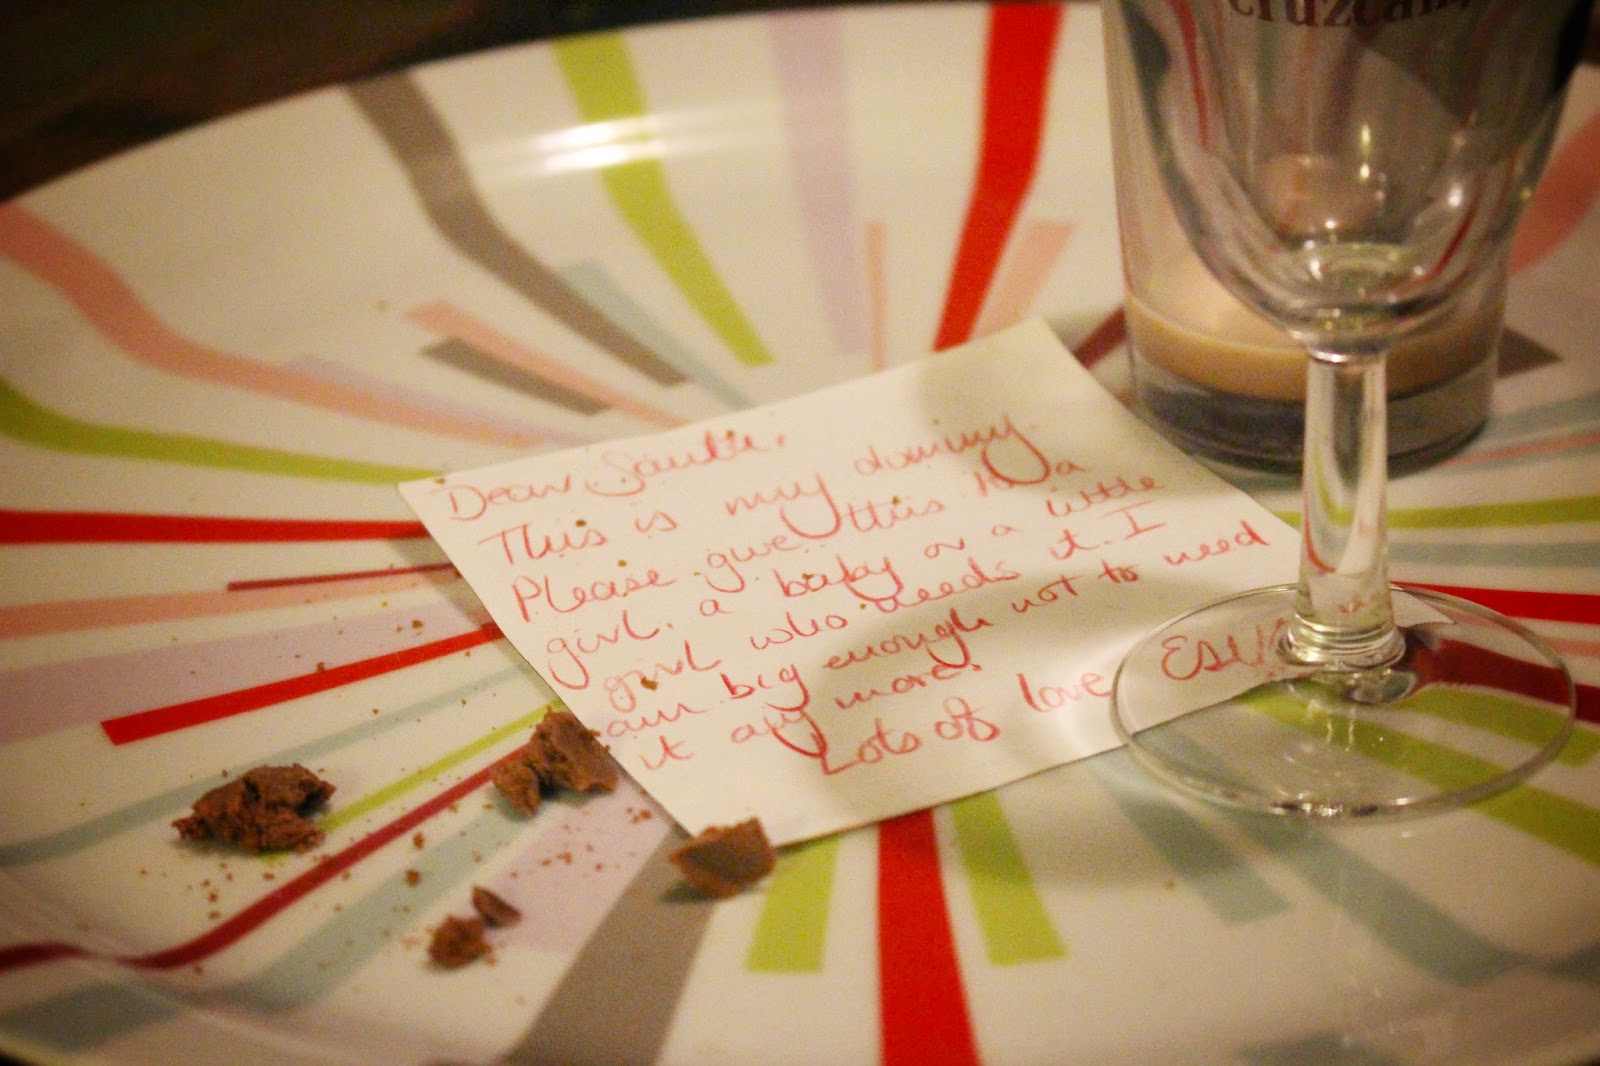 cruzcam
Dear Santa.
This is my dummy.
Please give this to a
girl. a baby or a little
girl who needs it. I
am big enough not to need
it any more.
Lots of love